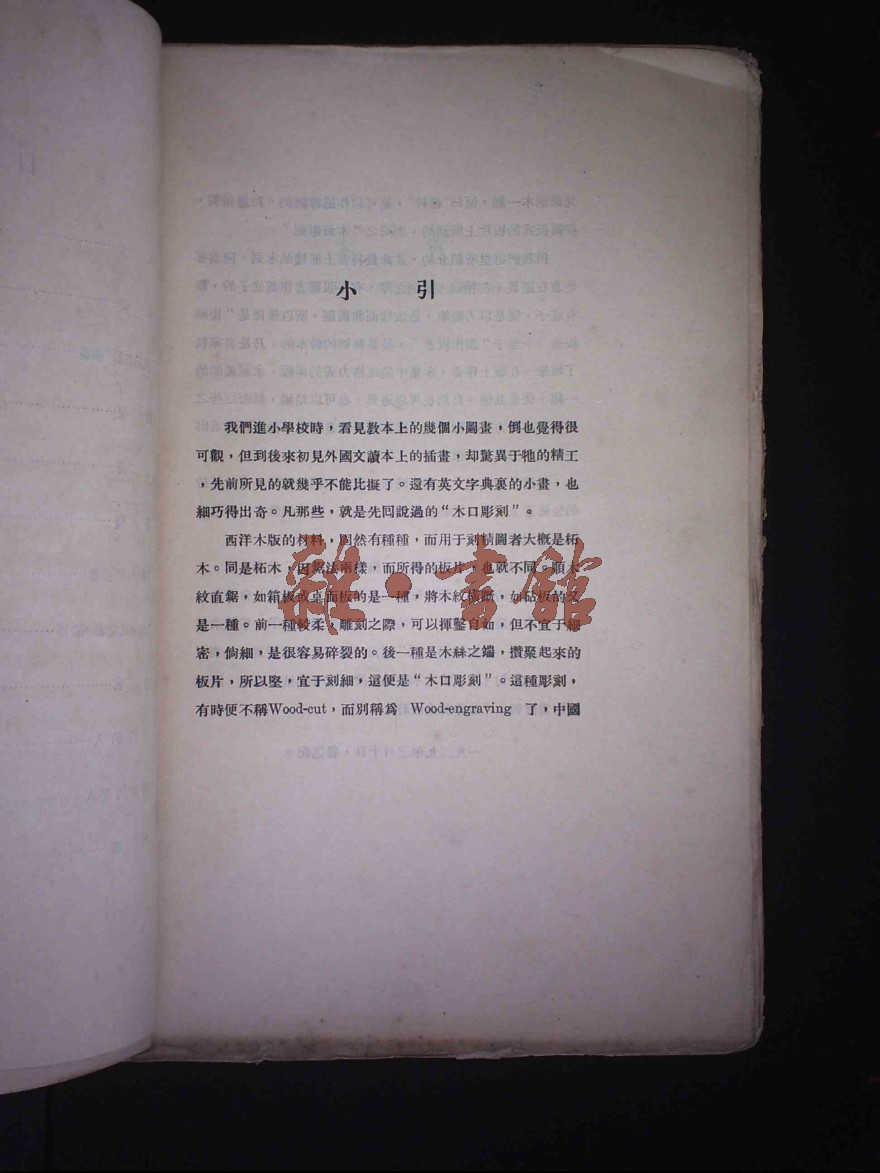 小 引
我們進小學校時，看見教本上的幾個小圖畫，倒也覺得很
可觀，但到後來初見外國文讀本上的插畫，却驚異于牠的精工
，先前所見的就幾乎不能比擬了。還有英文字典裏的小畫，也
細巧得出奇。凡那些，就是先回說過的“木口彫刻”。
西洋木版的材料，固然有種種，而用于刻精圖者大概是柘
木。同是柘木，因鋸法兩樣，而所得的板片，也就不同。順木
紋直鋸，如箱板或桌面板的是一種，將木紋橫斷，如砧板的又
是一種。前一種較柔，雕刻之際，可以揮鑿自如，但不宜于細
密，倘細，是很容易碎裂的。後一種是木絲之端，攢聚起來的
板片，所以堅，宜于刻細，這便是“木口彫刻”。這種彫刻，
有時便不稱Wood-cut，而別稱爲 Wood-engraving 了，中國
雜·書館